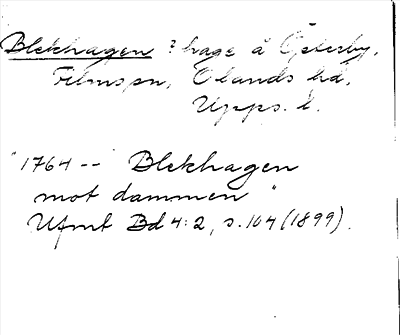 Blekhagen ? hage å Österby,
Films sn, Olands hd,
Upps. l.
"1764 -- Blekhagen
mot dammen"
Ufmt Bd 4:2, s. 104 (1899).